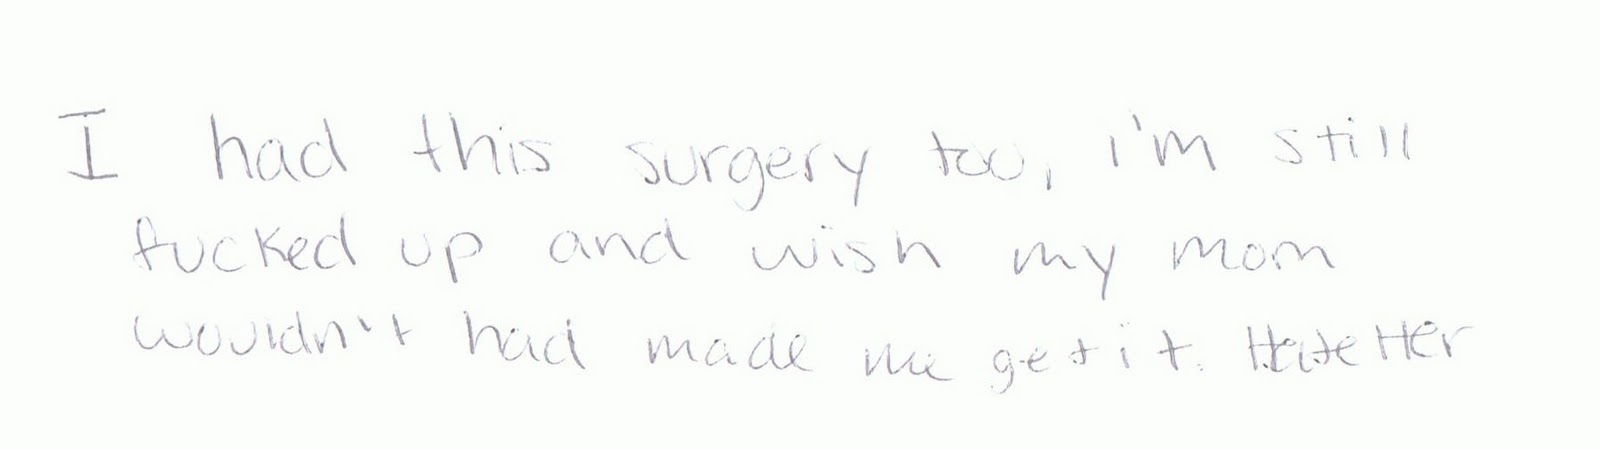 I had this surgery too, i'm still
fucked up and wish my mom
wouldn't had made me get it. Hate Her